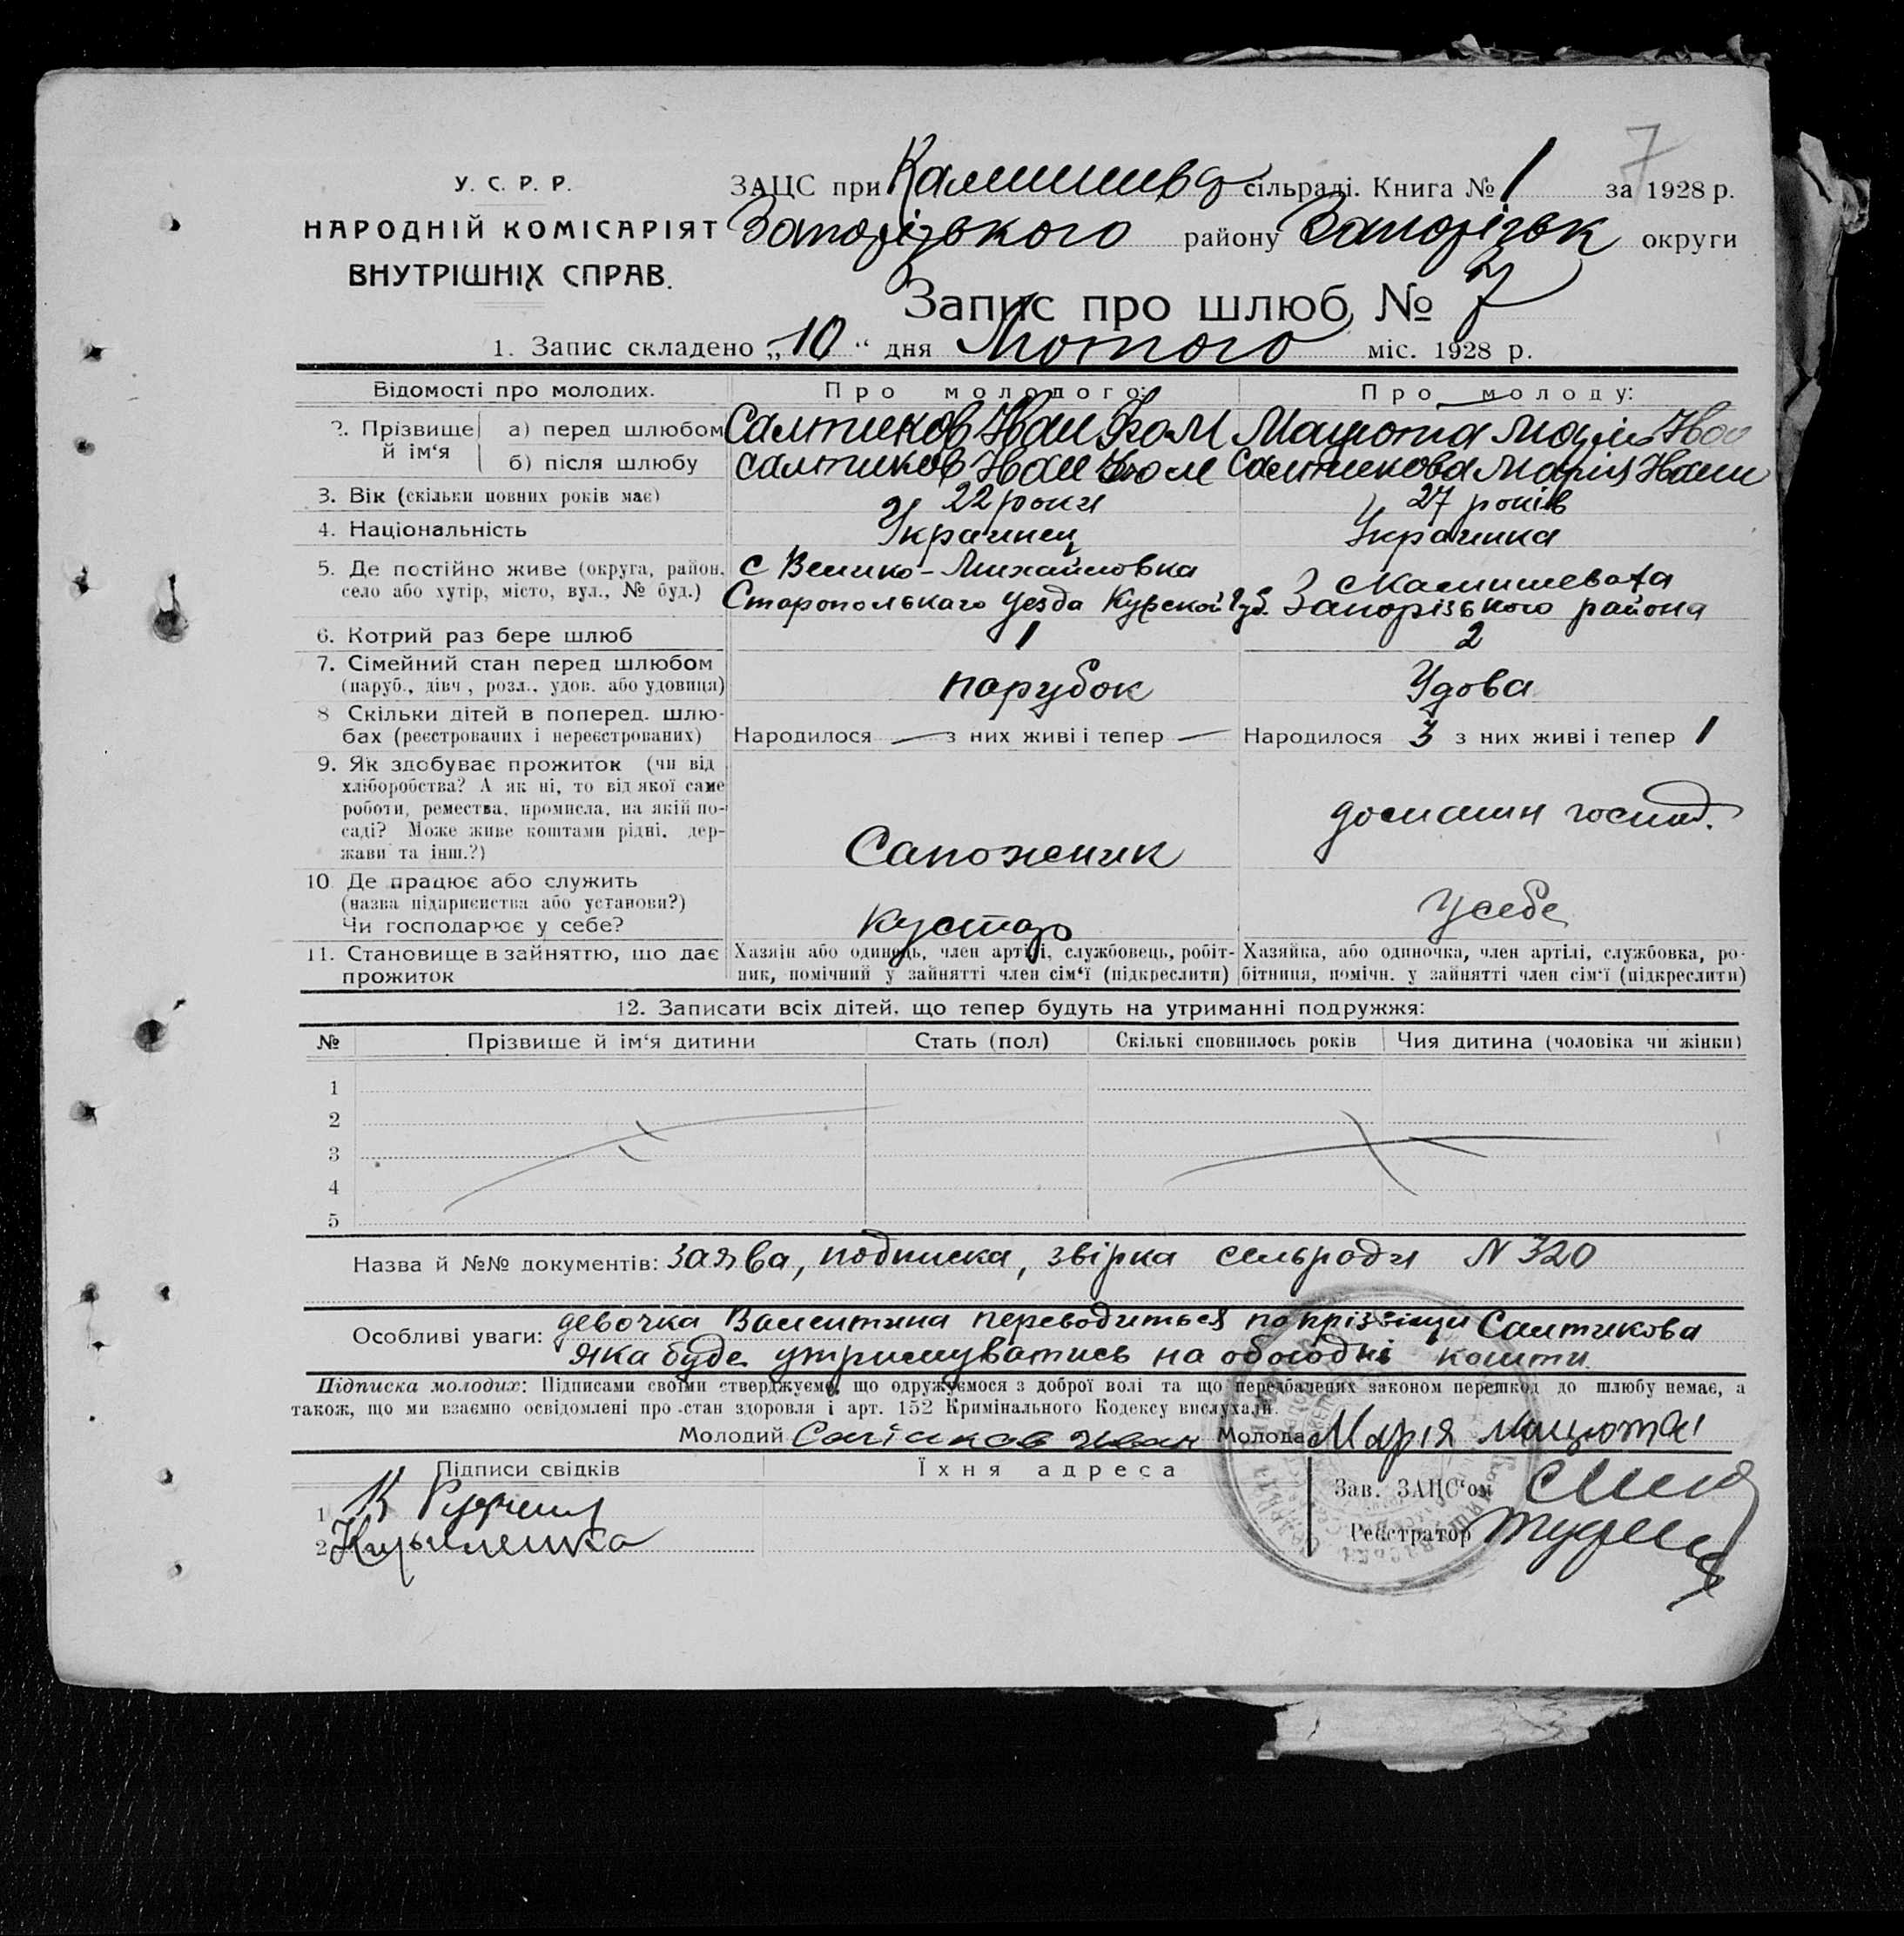 7
У. С. Р. Р.
НАРОДНІЙ КОМІСАРІЯТ
ВНУТРІШНІХ СПРАВ.
ЗАЦС при Камишева сільраді. Книга № 1 за 1928 р.
Запорізького району Запорізьк округи
Запис про шлюб № 7
1. Запис складено „10“ дня Лютого міс. 1928 р.
Відомості про молодих. Про молодого: Про молоду:
2. Прізвище й ім‘я а) перед шлюбом Салтиков Иван Фом Мацюта Марія Ива
б) після шлюбу Салтиков Иван Фом Салтикова Марія Иван
3. Вік (скільки повних років має) 22 роки 27 років
4. Національність Украинец Украинка
5. Де постійно живе (округа, район, село або хутір, місто, вул., № буд.) с Велико-Михайловка Старопольскаго Уезда Курской Губ. с Камишевата Запорізького района
6. Котрий раз бере шлюб 1 2
7. Сімейний стан перед шлюбом (паруб., дівч., розл., удов. або удовиця) парубок Удова
8 Скільки дітей в поперед. шлюбах (реєстрованих і нереєстрованих) Народилося — з них живі і тепер — Народилося 3 з них живі і тепер 1
9. Як здобуває прожиток (чи від хліборобства? А як ні, то від якої саме роботи, ремества, промисла, на якій посаді? Може живе коштами рідні, держави та інш.?) Сапожник домашн господ.
10 Де працює або служить (назва підприємства або установи?) Чи господарює у себе? кустар у себе
11. Становище в зайняттю, що дає прожиток Хазяїн або одинець, член артілі, службовець, робітник, помічний у зайнятті член сім‘ї (підкреслити) Хазяйка, або одиночка, член артілі, службовка, робітниця, помічн. у зайнятті член сім‘ї (підкреслити)
12. Записати всіх дітей, що тепер будуть на утриманні подружжя:
№ Прізвище й ім‘я дитини Стать (пол) Скількі сповнилось років Чия дитина (чоловіка чи жінки)
1
2
3
4
5
Назва й №№ документів: заява, подписка, звірка сельради N 320
Особливі уваги: девочка Валентина переводиться по прізвіщу Салтикова
яка буде утримуватись на обогодні кошти
Підписка молодих: Підписами своїми стверджуємо, що одружуємося з доброї волі та що передбачених законом перешкод до шлюбу немає, а
також, що ми взаємно освідомлені про стан здоровля і арт. 152 Кримінального Кодексу вислухали.
Молодий Салтиков Иван Молода Марія Мацюта
Підписи свідків Їхня адреса
1 К
2
Зав. ЗАЦС‘ом
Реєстратор